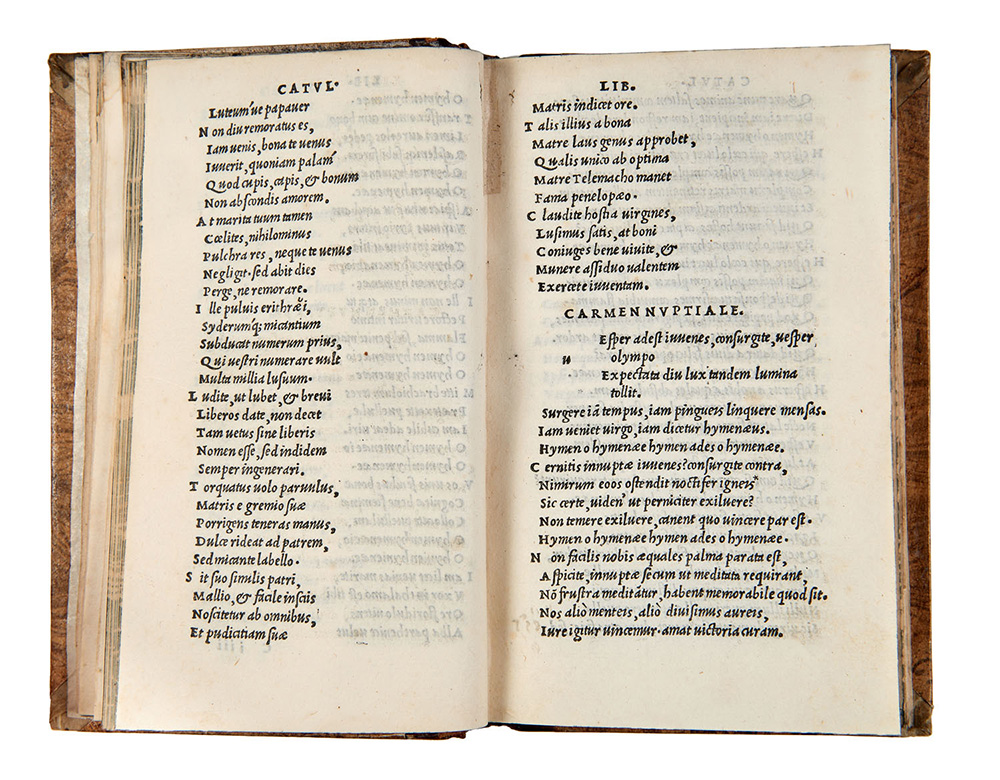 CATVL·
Luteum'ue papauer
Non diu remoratus es,
Iam uenis, bona te uenus
Iuuerit, quoniam palam
Quod cupis, capis, & bonum
Non abscondis amorem.
At marita tuum tamen
Cœlites, nihilominus
Pulchra res, neque te uenus
Negligit· sed abit dies
Perge, ne remorare.
Ille puluis erithræi,
Syderumq; micantium
Subducat numerum prius,
Qui uestri numerare uult
Multa millia lusuum·
Ludite, ut lubet, & breui
Liberos date, non decet
Tam uetus sine liberis
Nomen esse, sed indidem
Semper ingenerari.
Torquatus uolo paruulus,
Matris e gremio suæ
Porrigens teneras manus,
Dulce rideat ad patrem,
Sed micante labello·
Sit suo similis patri,
Mallio, & facile insciis
Noscitetur ab omnibus,
Et pudicitiam suæ
LIB.
Matris indicet ore.
Talis illius a bona
Matre laus genus approbet,
Qualis unico ab optima
Matre Telemacho manet
Fama penelopæo·
Claudite hostia uirgines,
Lusimus satis, at boni
Coniuges bene uiuite, &
Munere assiduo ualentem
Exercete iuuentam.
CARMEN NVPTIALE.
u Esper adest iuuenes, consurgite, uesper
olympo
Expectata diu lux tandem lumina
tollit.
Surgere iã tempus, iam pingueis linquere mensas.
Iam ueniet uirgo, iam dicetur hymenæus.
Hymen o hymenæe hymen ades o hymenæe.
Cernitis innuptæ iuuenes? consurgite contra,
Nimirum eoos ostendit noctifer igneis
Sic certe, uiden' ut perniciter exiluere?
Non temere exiluere, canent quo uincere par est·
Hymen o hymenæe hymen ades o hymenæe·
Non facilis nobis æquales palma parata est,
Aspicite, innuptæ secum ut meditata requirant,
Nõ frustra meditãtur, habent memorabile quod sit·
Nos aliò menteis, aliò diuisimus aureis,
Iure igitur uincemur· amat uictoria curam.